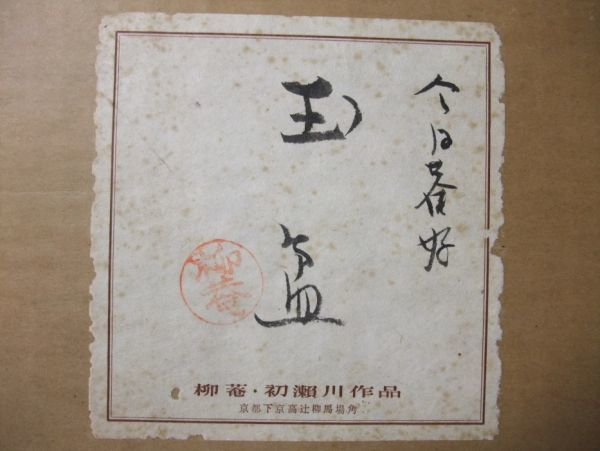 今日菴好
玉盆
柳菴
柳菴・初瀬川作品
京都下京高辻柳馬場角